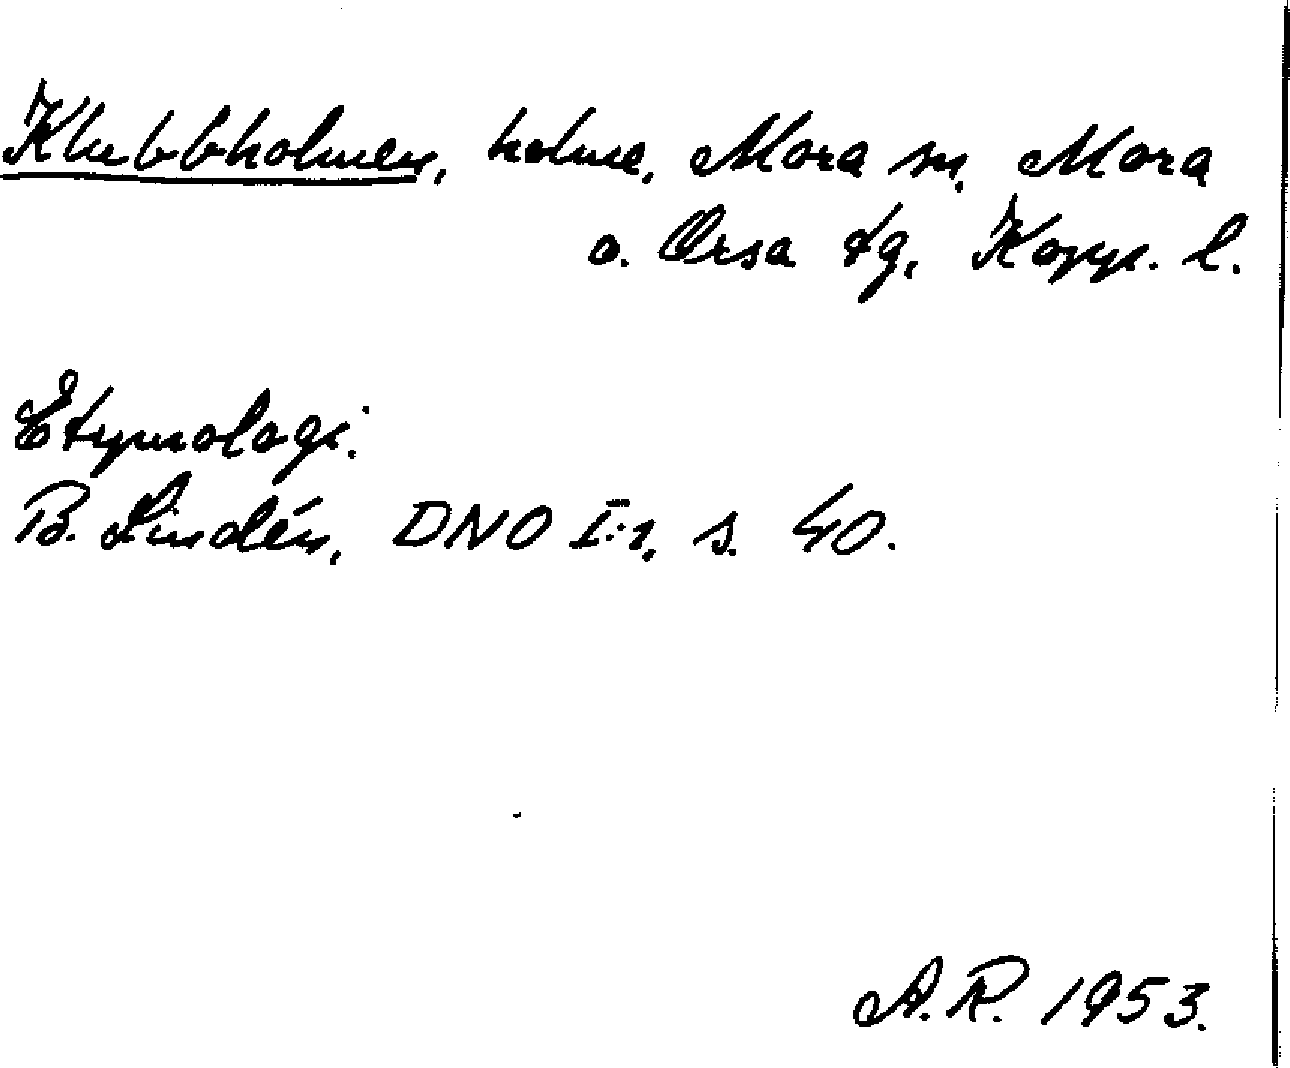 Klubbholmen, holme, Mora sn, Mora
o. Orsa tg, Kopp. l.
Etymologi:
B. Lindén, DNO I:1, s. 40.
A.R. 1953.